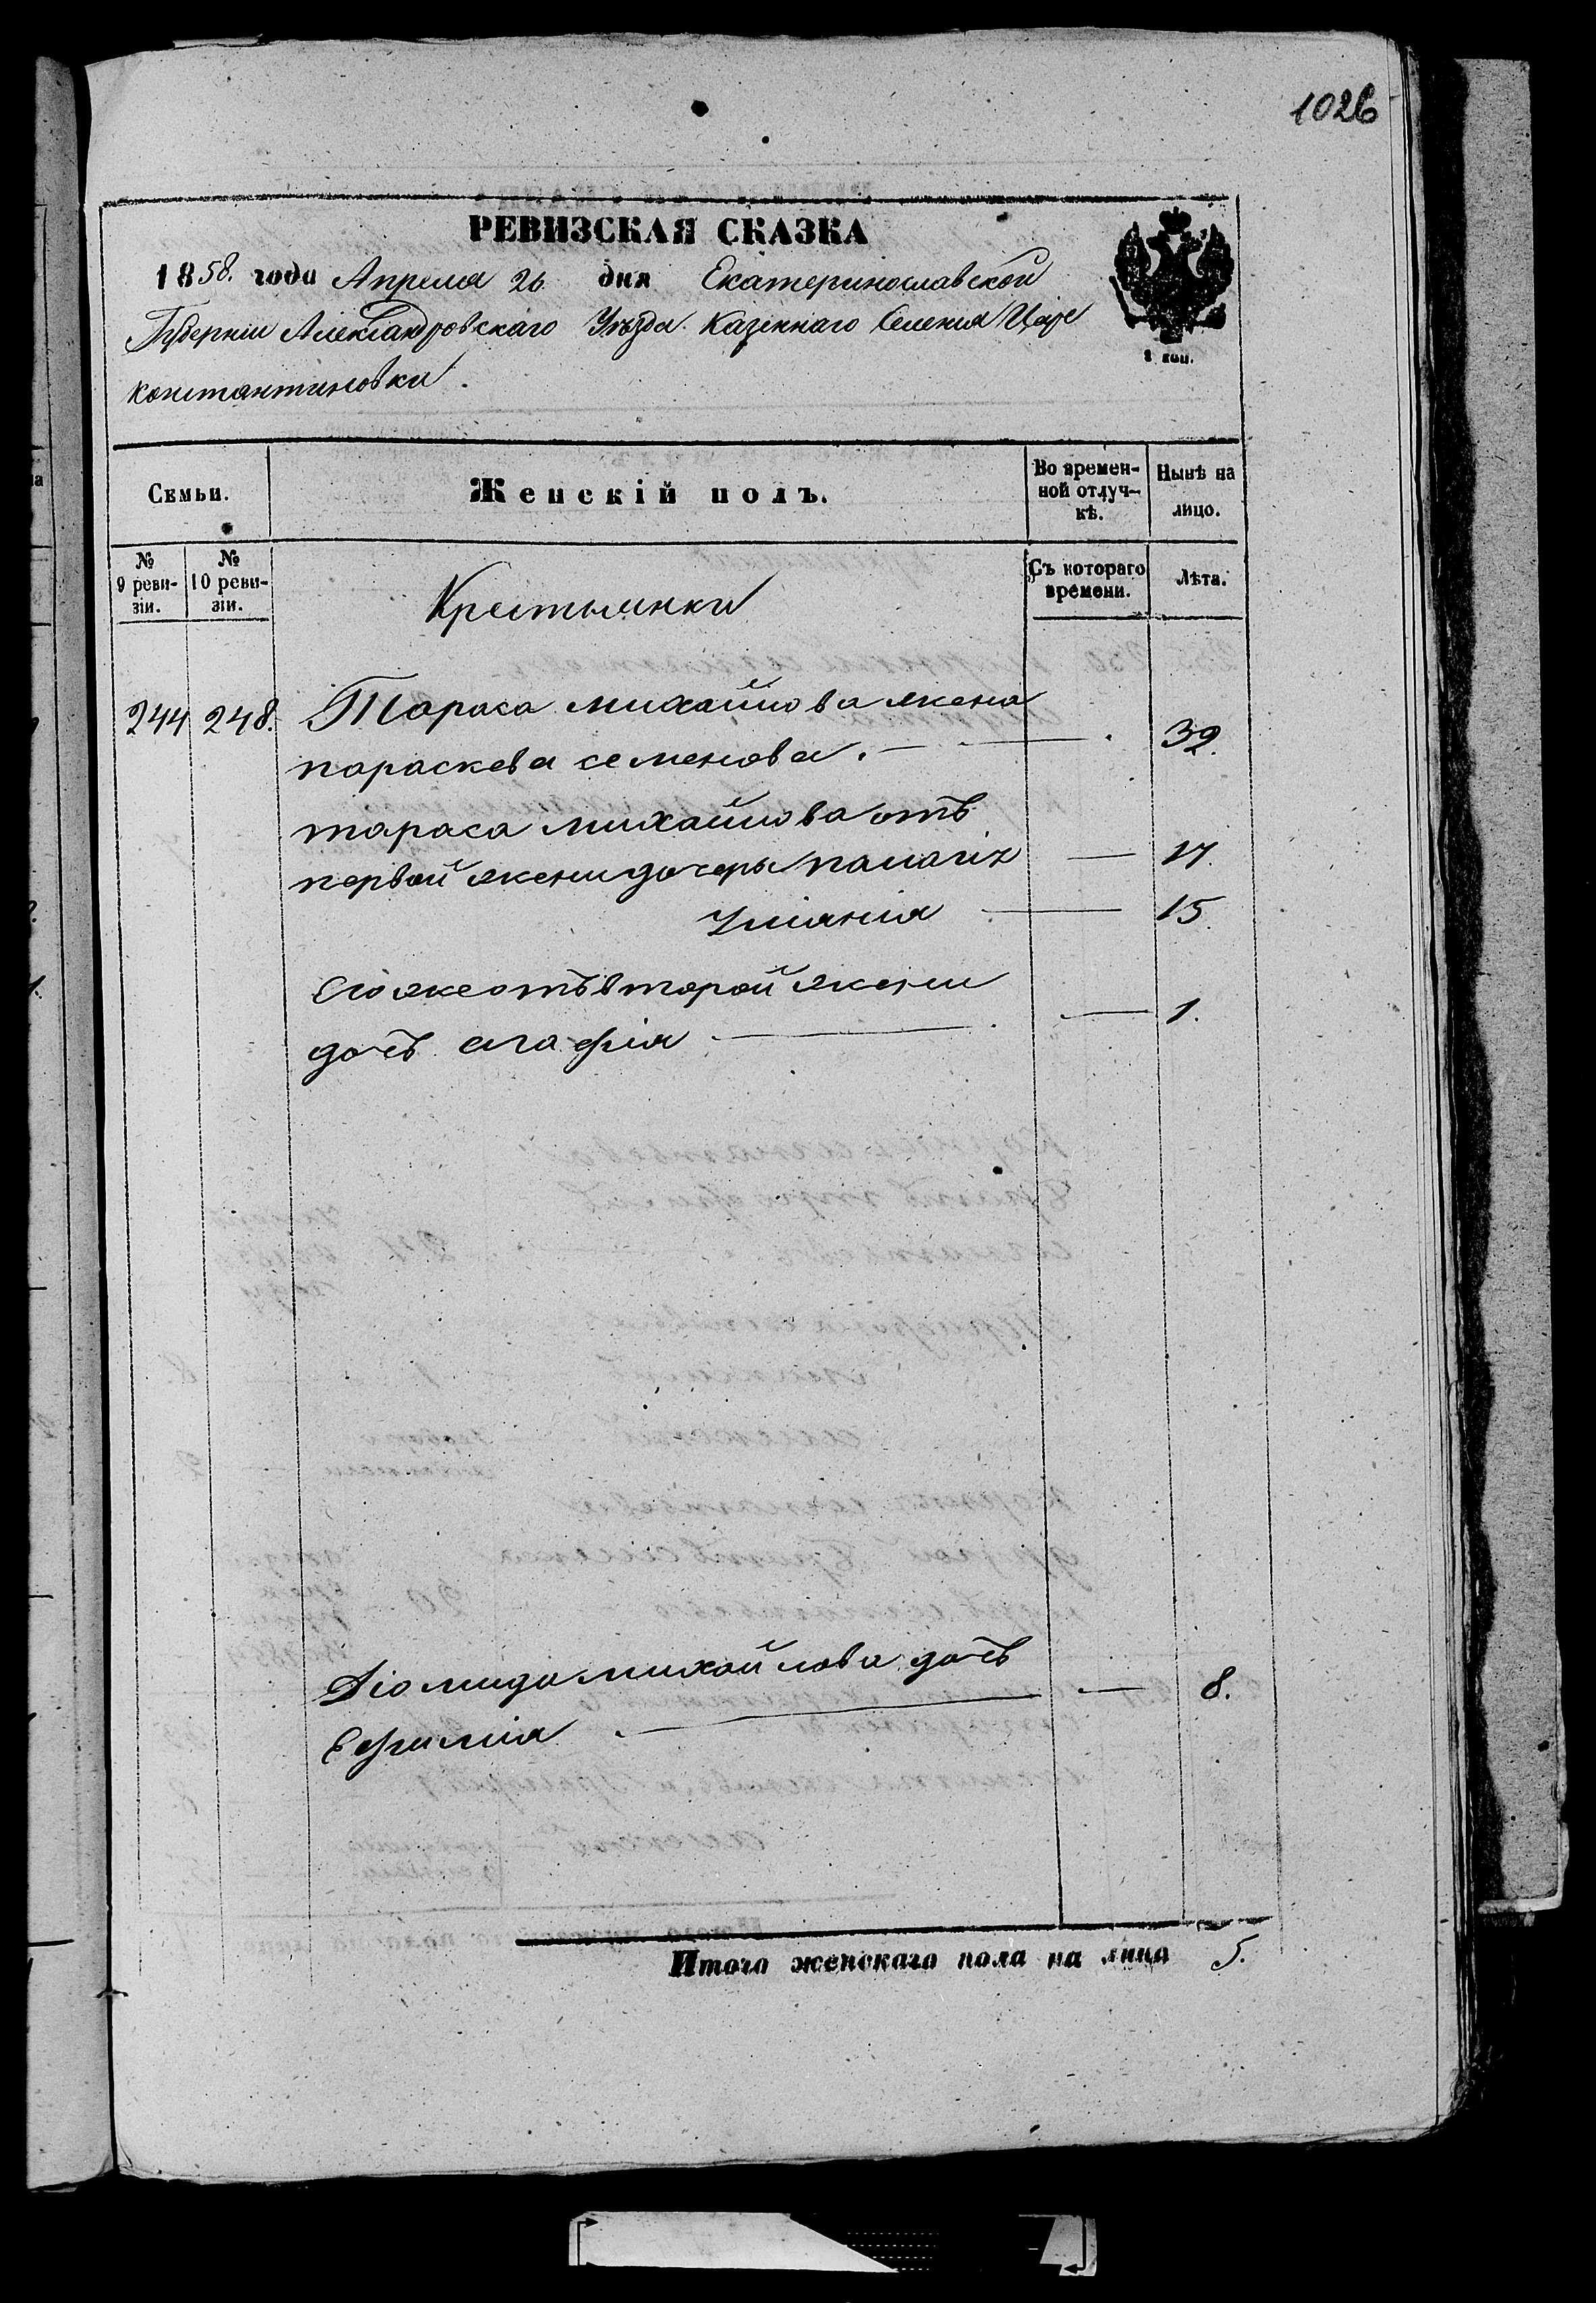 1026
РЕВИЗСКАЯ СКАЗКА
1858. года Апреля 26 дня Екатеринославской
Губерніи Александровскаго Уѣзда Казеннаго Селенія Царе
константиновки.
2 коп.
Семьи.
Женскій полъ.
Во времен-
ной отлуч-
кѣ.
Нынѣ на
лицо.
№
9 реви-
зіи.
№
10 реви-
зіи.
Съ котораго
времени.
Лѣта.
Крестьянки
244 248. Тараса михайлова жена
параскева семенова. 39.
тараса михайлова отъ
первой жени дочеры 17.
Уліянія 15.
Его же отъ второй жени
дочъ агафія 1.
Діомида михайлова дочъ 8.
Ефимія
Итого женскаго пола на лицо 5.